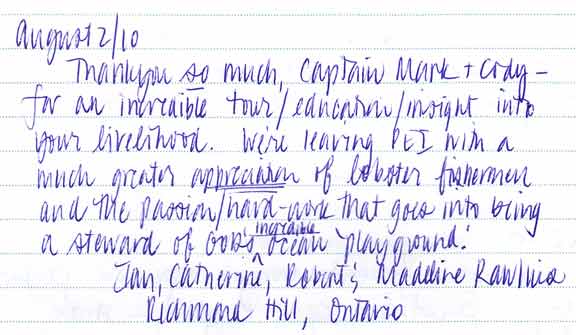 August 2/10
Thankyou so much, Captain Mark + Cody –
for an incredible tour/education/insight into
your livelihood. We're leaving PEI with a
much greater appreciation of lobster fishermen
and the passion/hard-work that goes into being
a steward of God's incredible ocean 'playground.'
Jan, Catherine, Robert & Madeline Rawlins
Richmond Hill, Ontario